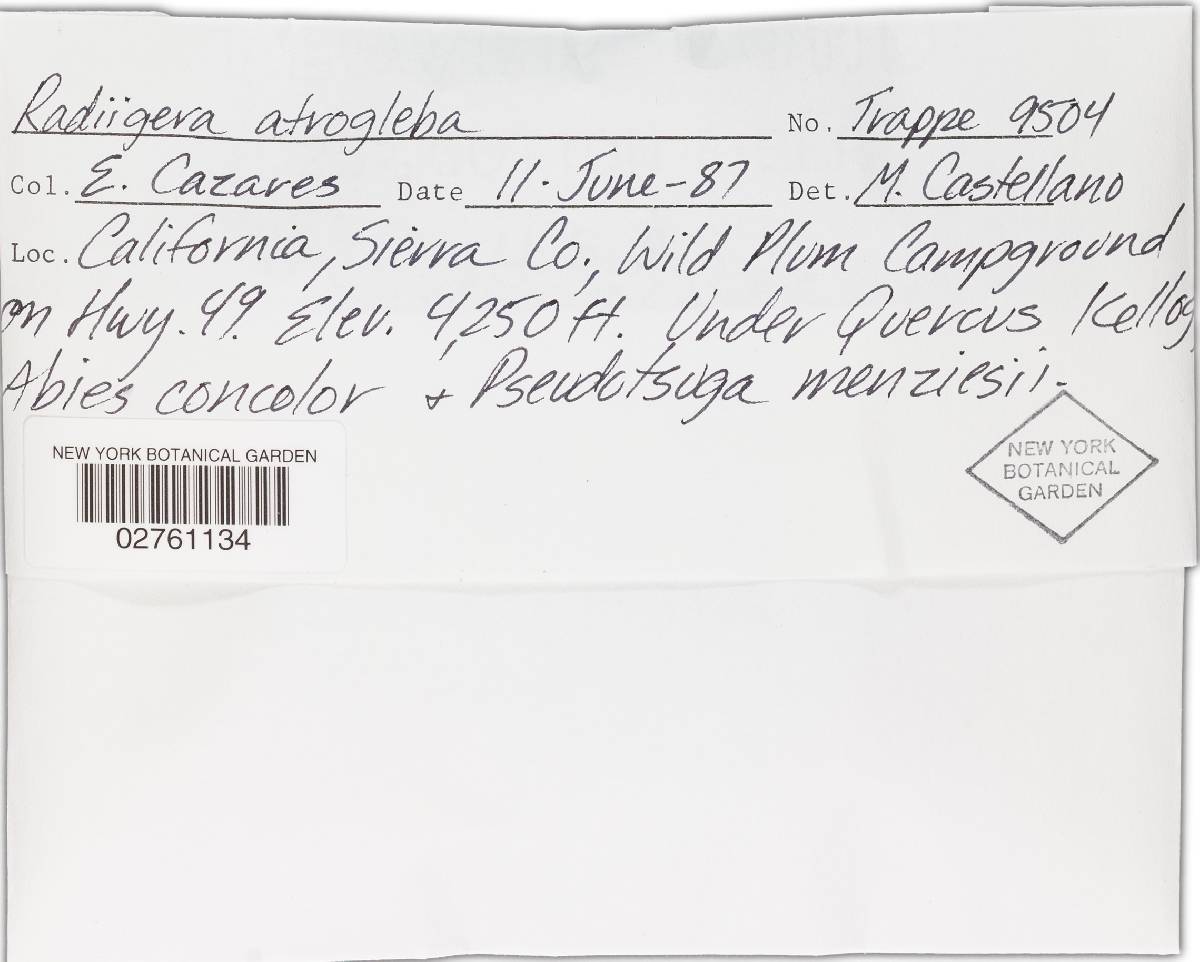 Radiigera atrogleba No. Trappe 9504
Col. E. Cazares Date 11-June-87 Det. M. Castellano
Loc. California, Sierra Co., Wild Plum Campground
on Hwy. 49. Elev. 4,250 ft. Under Quercus Kellog
Abies concolor + Pseudotsuga menziesii.
NEW YORK BOTANICAL GARDEN
02761134
NEW YORK
BOTANICAL
GARDEN